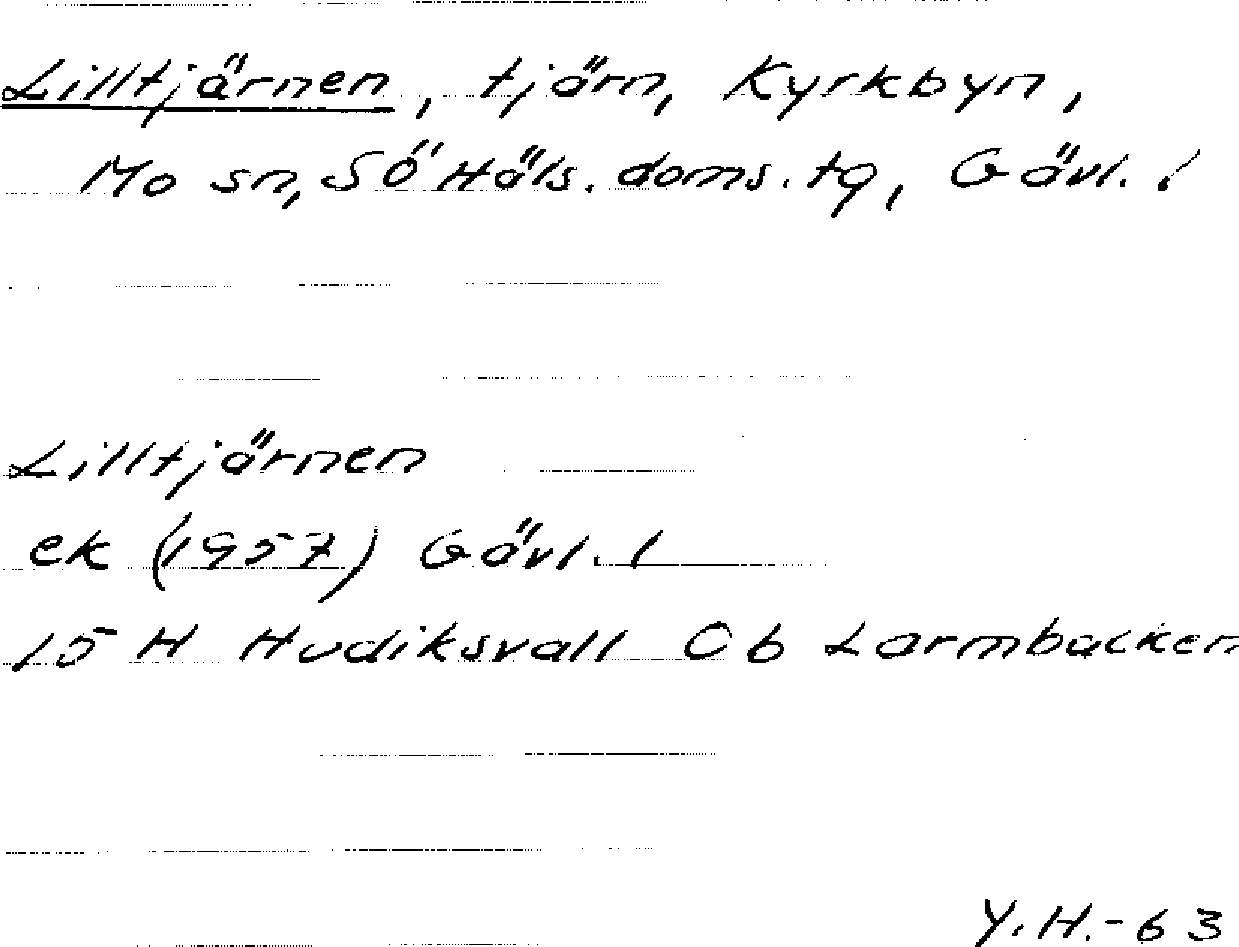 Lilltjärnen, tjärn, Kyrkbyn,
Mo sn, SÖ Häls. doms. tg, Gävl. l
Lilltjärnen
ek (1957) Gävl. l
15 H Hudiksvall Ob Larmbacken
Y.H.-63